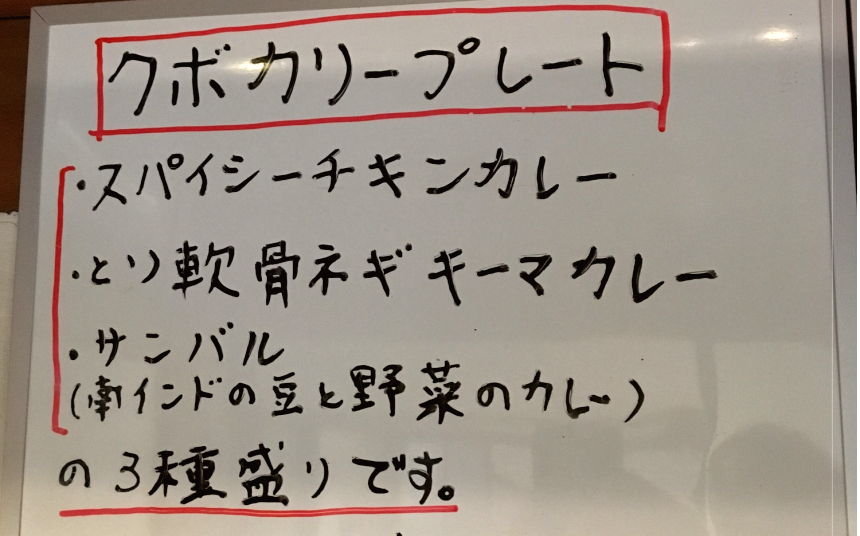 クボカリープレート
・スパイシーチキンカレー
・とり軟骨ネギキーマカレー
・サンバル
(南インドの豆と野菜のカレー)
の3種盛りです。